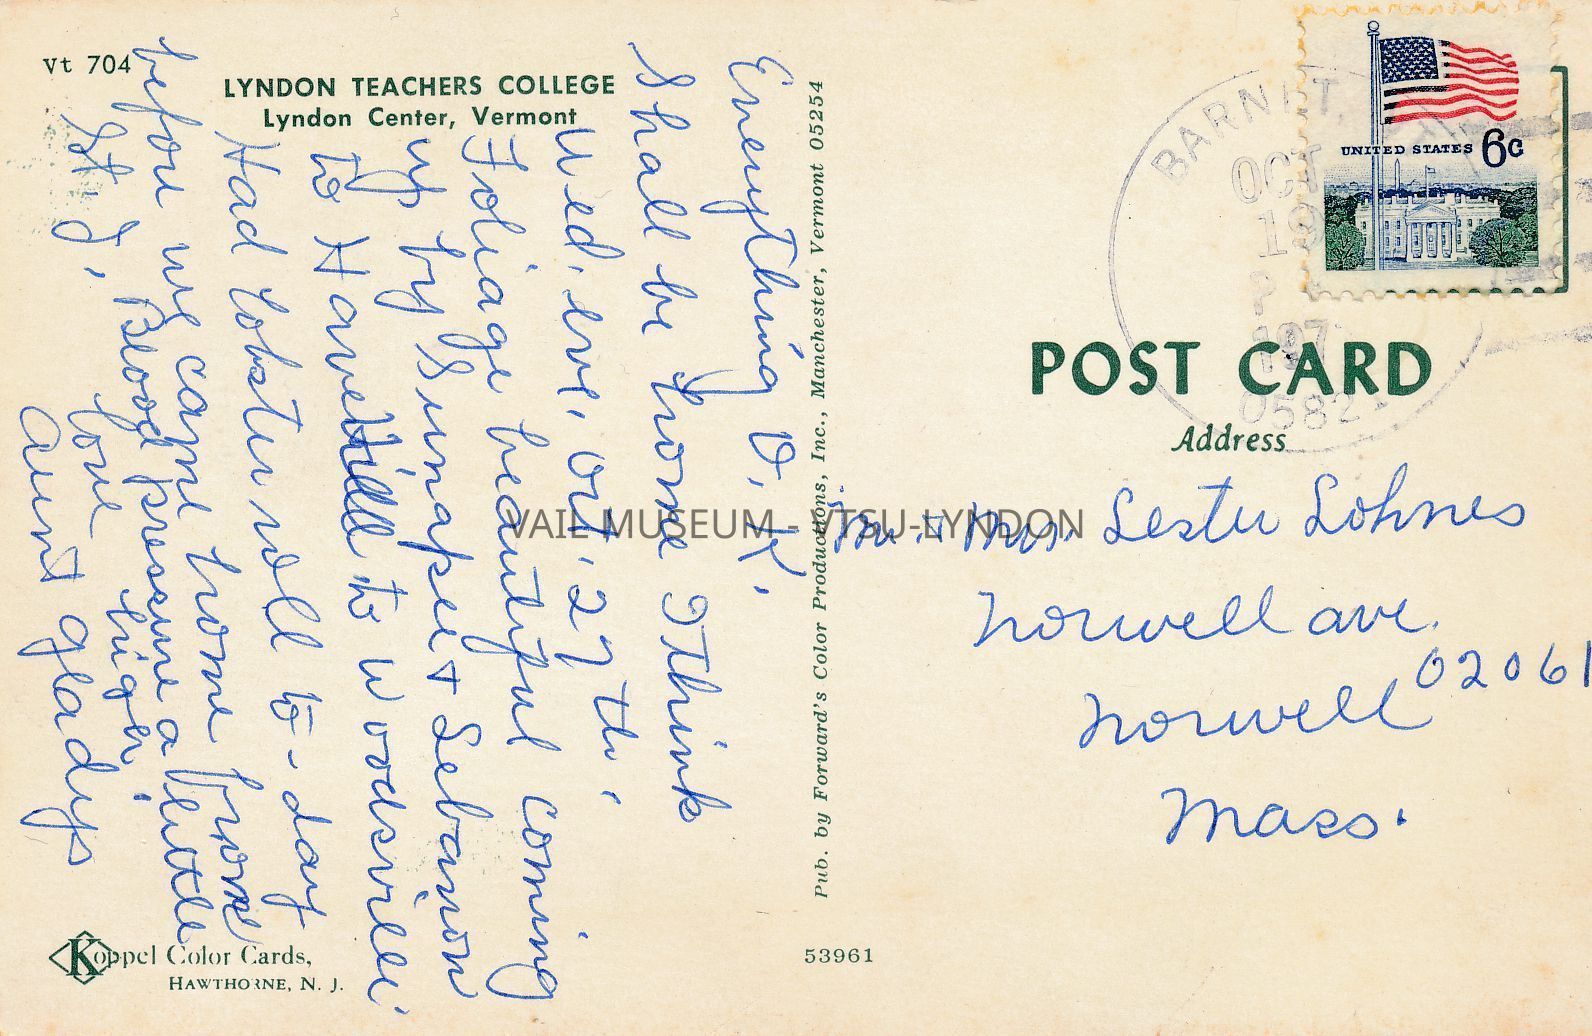 Vt 704
LYNDON TEACHERS COLLEGE
Lyndon Center, Vermont
Everything O.K.
Shall be home I think
Wed. eve. Oct. 27 th.
Foliage beautiful coming
up by Sunapee & Lebanon
to Haverhill to Woodsville.
Had lobster roll to-day
before we came home from
St. J. Blood pressure a little
higher.
Love
Aunt Gladys
Koppel Color Cards,
HAWTHORNE, N. J.
Pub. by Forward's Color Productions, Inc., Manchester, Vermont 05254
53961
BARNET,
OCT
19
P
197
05821
UNITED STATES 6c
POST CARD
Address
Mr. & Mrs. Lester Lohnes
Norwell Ave.
Norwell 02061
Mass.
VAIL MUSEUM - VTSU-LYNDON